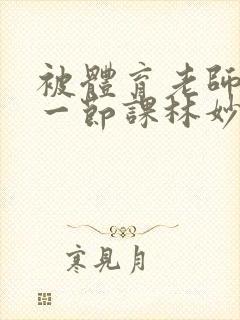 被體育老師
一節課林妙
寒見月